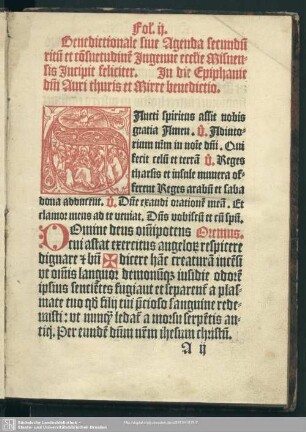 Fol. ij.
Benedictionale siue Agenda secundũ
ritũ et cõsuetudinẽ Ingenue ecclie Misnen-
sis Incipit feliciter. In die Epiphanie
dñi Auri thuris et Mirre benedictio.
Sancti spiritus assit nobis
gratia Amen. V̉. Adiuto-
rium nr̃m in noĩe dñi. Qui
fecit celũ et terrã V̉. Reges
tharsis et insule munera of-
ferent Reges arabũ et saba
dona adducent. V̉. Dñe exaudi orationẽ meã. Et
clamor meus ad te veniat. Dñs vobiscũ et cũ spũ.
Domine deus oĩpotens Oremus.
cui astat exercitus angeloꝝ respicere
dignare et bñ ✠ dicere hanc creaturã
vt oĩnis languor demonũqꝫ insidie odorẽ
ipsius sentiẽtes fugiant et separent᷑ a plas-
mate tuo qđ filij tui p̃cioso sanguine rede-
misti: vt nunq̃ ledat᷑ a morsu serpẽtis an-
tiq̃. Per eundẽ dñm nr̃m ihesum christũ.
A ij